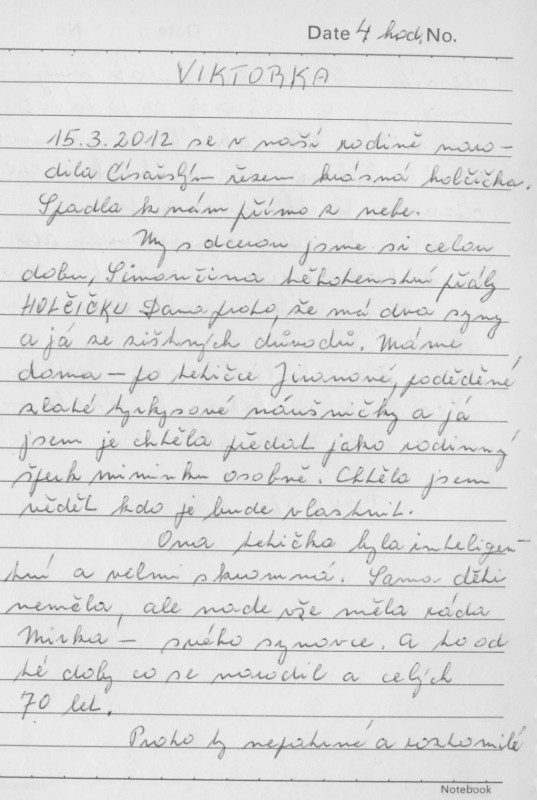 Date 4 hod. No.
VIKTORKA
15.3.2012 se v naší rodině naro-
dila Císařským řezem krásná holčička.
Spadla k nám přímo z nebe.
My s dcerou jsme si celou
dobu, Simončina těhotenství přály
HOLČIČKU Dana proto, že má dva syny
a já ze zištných důvodů. Máme
doma - po tetičce Jiranové, poděděné
zlaté tyrkysové náušničky a já
jsem je chtěla předat jako rodinný
šperk miminku osobně. Chtěla jsem
vědět kdo je bude vlastnit.
Ona tetička byla inteligen-
tní a velmi skromná. Sama děti
neměla, ale nade vše měla ráda
Mirka - svého synovce. A to od
té doby co se narodil a celých
70 let.
Proto ty nepatrné a roztomilé
Notebook